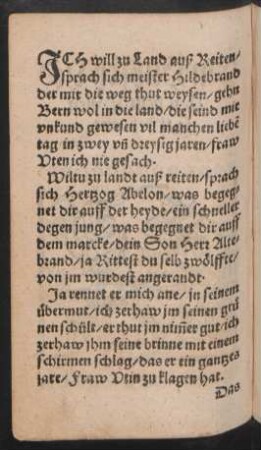 ICH will zu Land auß Reiten/
sprach sich meister Hildebrand
der mir die weg thut weysen/gehn
Bern wol in die land/die seind mir
vnkund gewesen vil manchen liebē
tag in zwey vñ dreysig jaren/fraw
Vten ich nie gesach.
Wiltu zu landt auß reiten/sprach
sich Hertzog Abelon/was begeg-
net dir auff der heyde/ein schneller
degen jung/was begegnet dir auff
dem marcke/dein Son Herr Alte-
brand/ja Rittest du selb zwölffte/
von jm wurdest angerandt.
Ja rennet er mich ane/in seinem
übermut/ich zerhaw jm seinen grü
nen schilt/er thut jm nim̃er gut/ich
zerhaw jhm seine brinne mit einem
schirmen schlag/das er ein gantzes
jare/Fraw Vtin zu klagen hat.
Das